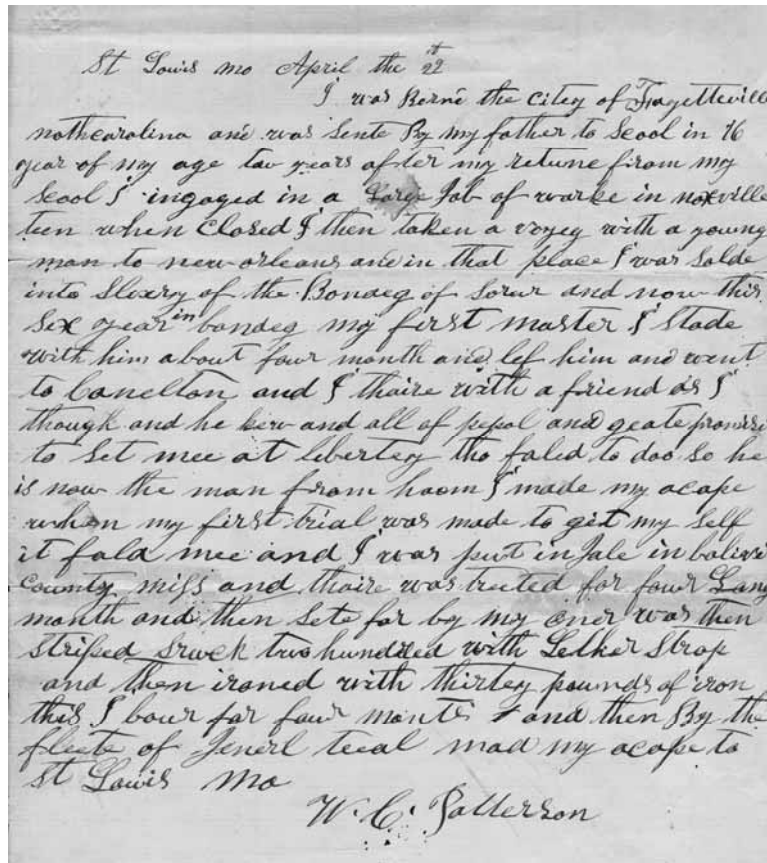 St Lowis mo April the 22th
I was Borne the Citey of Fayetteville
nothcarolina and was Sente By my father to Scool in 16
year of my age tow years after my retune from my
Scool I ingaged in a Large Job of warke in noxville
teen when Closed I then taken a voyeg with a young
man to new orleans and in that place I was Solde
into Slavery of the Bondeg of and now this
Sex year in bondeg my first master I Stade
with him about four month and lef him and went
to Canelton and I thaire with a friend as I
though and he and all of pepol and promise
to Set mee at libertey tho faled to doo so he
is now the man from hoom I made my acape
when my first trial was made to git my Self
it fald mee and I was put in Jale in
County miss and thaire was treted for four Long
month and then Sete for by my oner was then
striped sruck two hundred with Lether Strap
and then ironed with thirtey pounds of iron
this I bour for four months and then By the
fleete of Jenerl teal mad my acape to
St Lowis Mo
W. C. Patterson